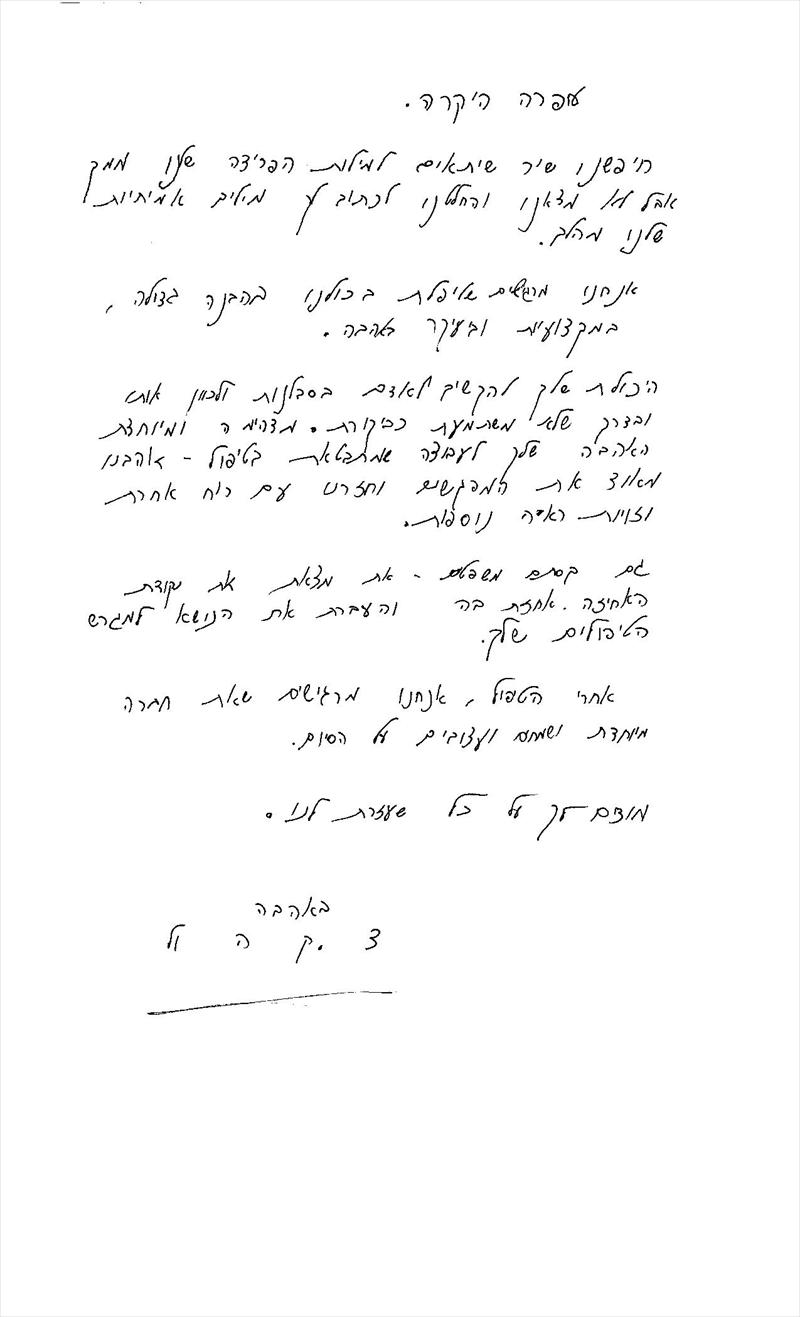 עפרה היקרה.
חיפשנו שיר שיתאים למילות הפרידה שלנו ממך
אבל לא מצאנו והחלטנו לכתוב לך מילים אמיתיות
שלנו מהלב.
אנחנו מרגשים שטיפלת בכולנו בהבנה גדולה,
במקצועיות ובעיקר באהבה.
היכולת שלך להקשיב לאדם בסבלנות ולכוון אותו
ובדרך שלא משתמעת כביקורת. מדהימה ומיוחדת
האהבה שלך לעבודה שמתבטאת בטיפול - אהבנו
מאוד את המפגשים וחזרנו עם רוח אחרת
וזויות ראיה נוספות.
גם בסתם משפטים - את מצאת את נקודת
האחיזה. אחזת בה והעברת את הנושא למגרש
הטיפולים שלך.
אחרי הטפול, אנחנו מרגישים שאת חברה
מיוחדת ושמחים ועצובים על הסיום.
מודים לך על כל שעזרת לנו.
באהבה
צ ק. ה ול